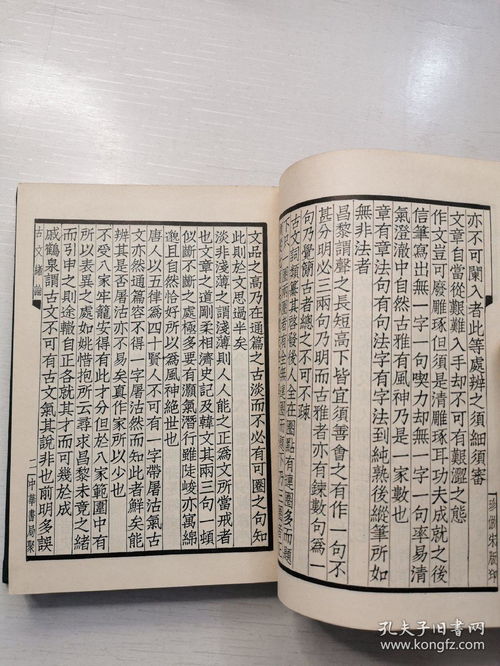 珍倣宋版印
亦不可闌入者此等處辨之須細須審
文章自當從艱難入手却不可有艱澀之態
作文豈可廢雕琢但須是清雕琢耳功夫成就之後
信筆寫出無一字一句喫力却無一字一句率易清
氣澄澈中自然古雅有風神乃是一家數也
章有章法句有句法字有字法到純熟後縱筆所如
無非法者
昌黎謂聲之長短高下皆宜須善會之有作一句不
甚分明必三兩句乃明而古雅者亦有鍊數句為一
句乃覺簡古者總之不可不琢
全在圈點有連圈多而題
文品之高乃在通篇之古淡而不必有可圈之句知
此則於文思過半矣
淡非淺薄之謂淺薄則人人能之正為文所當戒者
也文章之道剛柔相濟史記及韓文其兩三句一頓
似斷不斷之處極多要有灝氣潛行雖陡峻亦寓綿
邈且自然恰好所以為風神絕世也
唐人以五律為四十賢人不可有一字帶屠沽氣古
文亦然通篇容不得一字屠沽然而知此者鮮矣能
辨其是否屠沽亦不易矣真作家所以少也
不受八家牢籠安得有此才分但於八家範圍中有
所以表異之處如姚惜抱所云尋求昌黎未竟之緒
而引申之則途轍自正各就其才而可幾於成
戚鶴泉謂古文不可有古文氣其說非也前明多誤
古文緒論
二
中華書局聚
孔夫子旧书网
www.kongfz.com